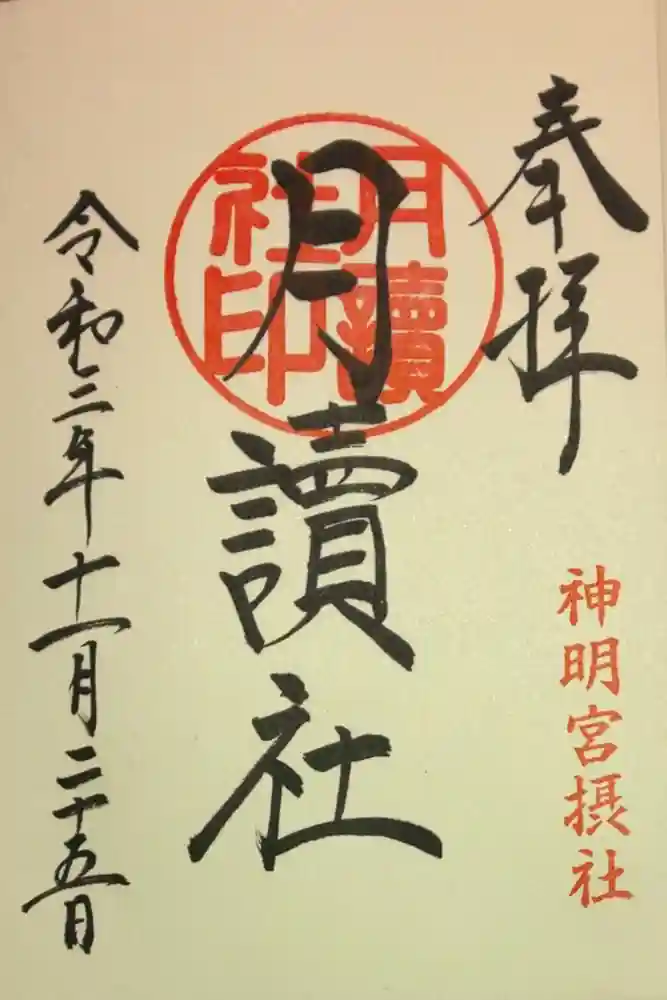 奉拝
神明宮摂社
月讀
社印
月讀社
令和三年十一月二十五日